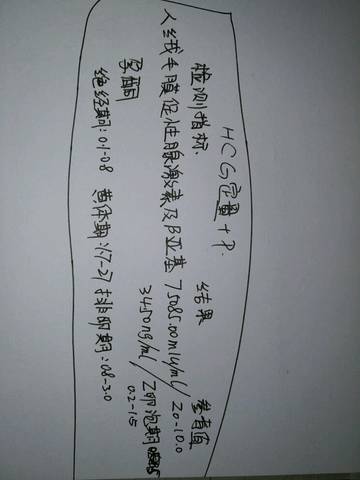 HCG定量+P.
检测指标. 结果 参考值
人绒毛膜促性腺激素及β亚基 75085.00mIU/ml/ Z0-10.0
孕酮 34.50ng/ml/ Z卵泡期
0.2-1.5
绝经期:0.1-0.8 黄体期:1.7-27 排卵期:0.8-3.0